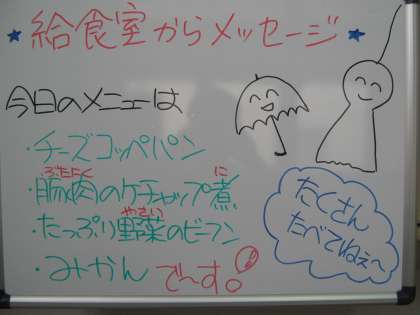 ★給食室からメッセージ★
今日のメニューは
・チーズコッペパン
ぶたにく に
・豚肉のケチャップ煮
やさい
・たっぷり野菜のビーフン
・みかん で〜す。
たくさん
たべてねぇ〜